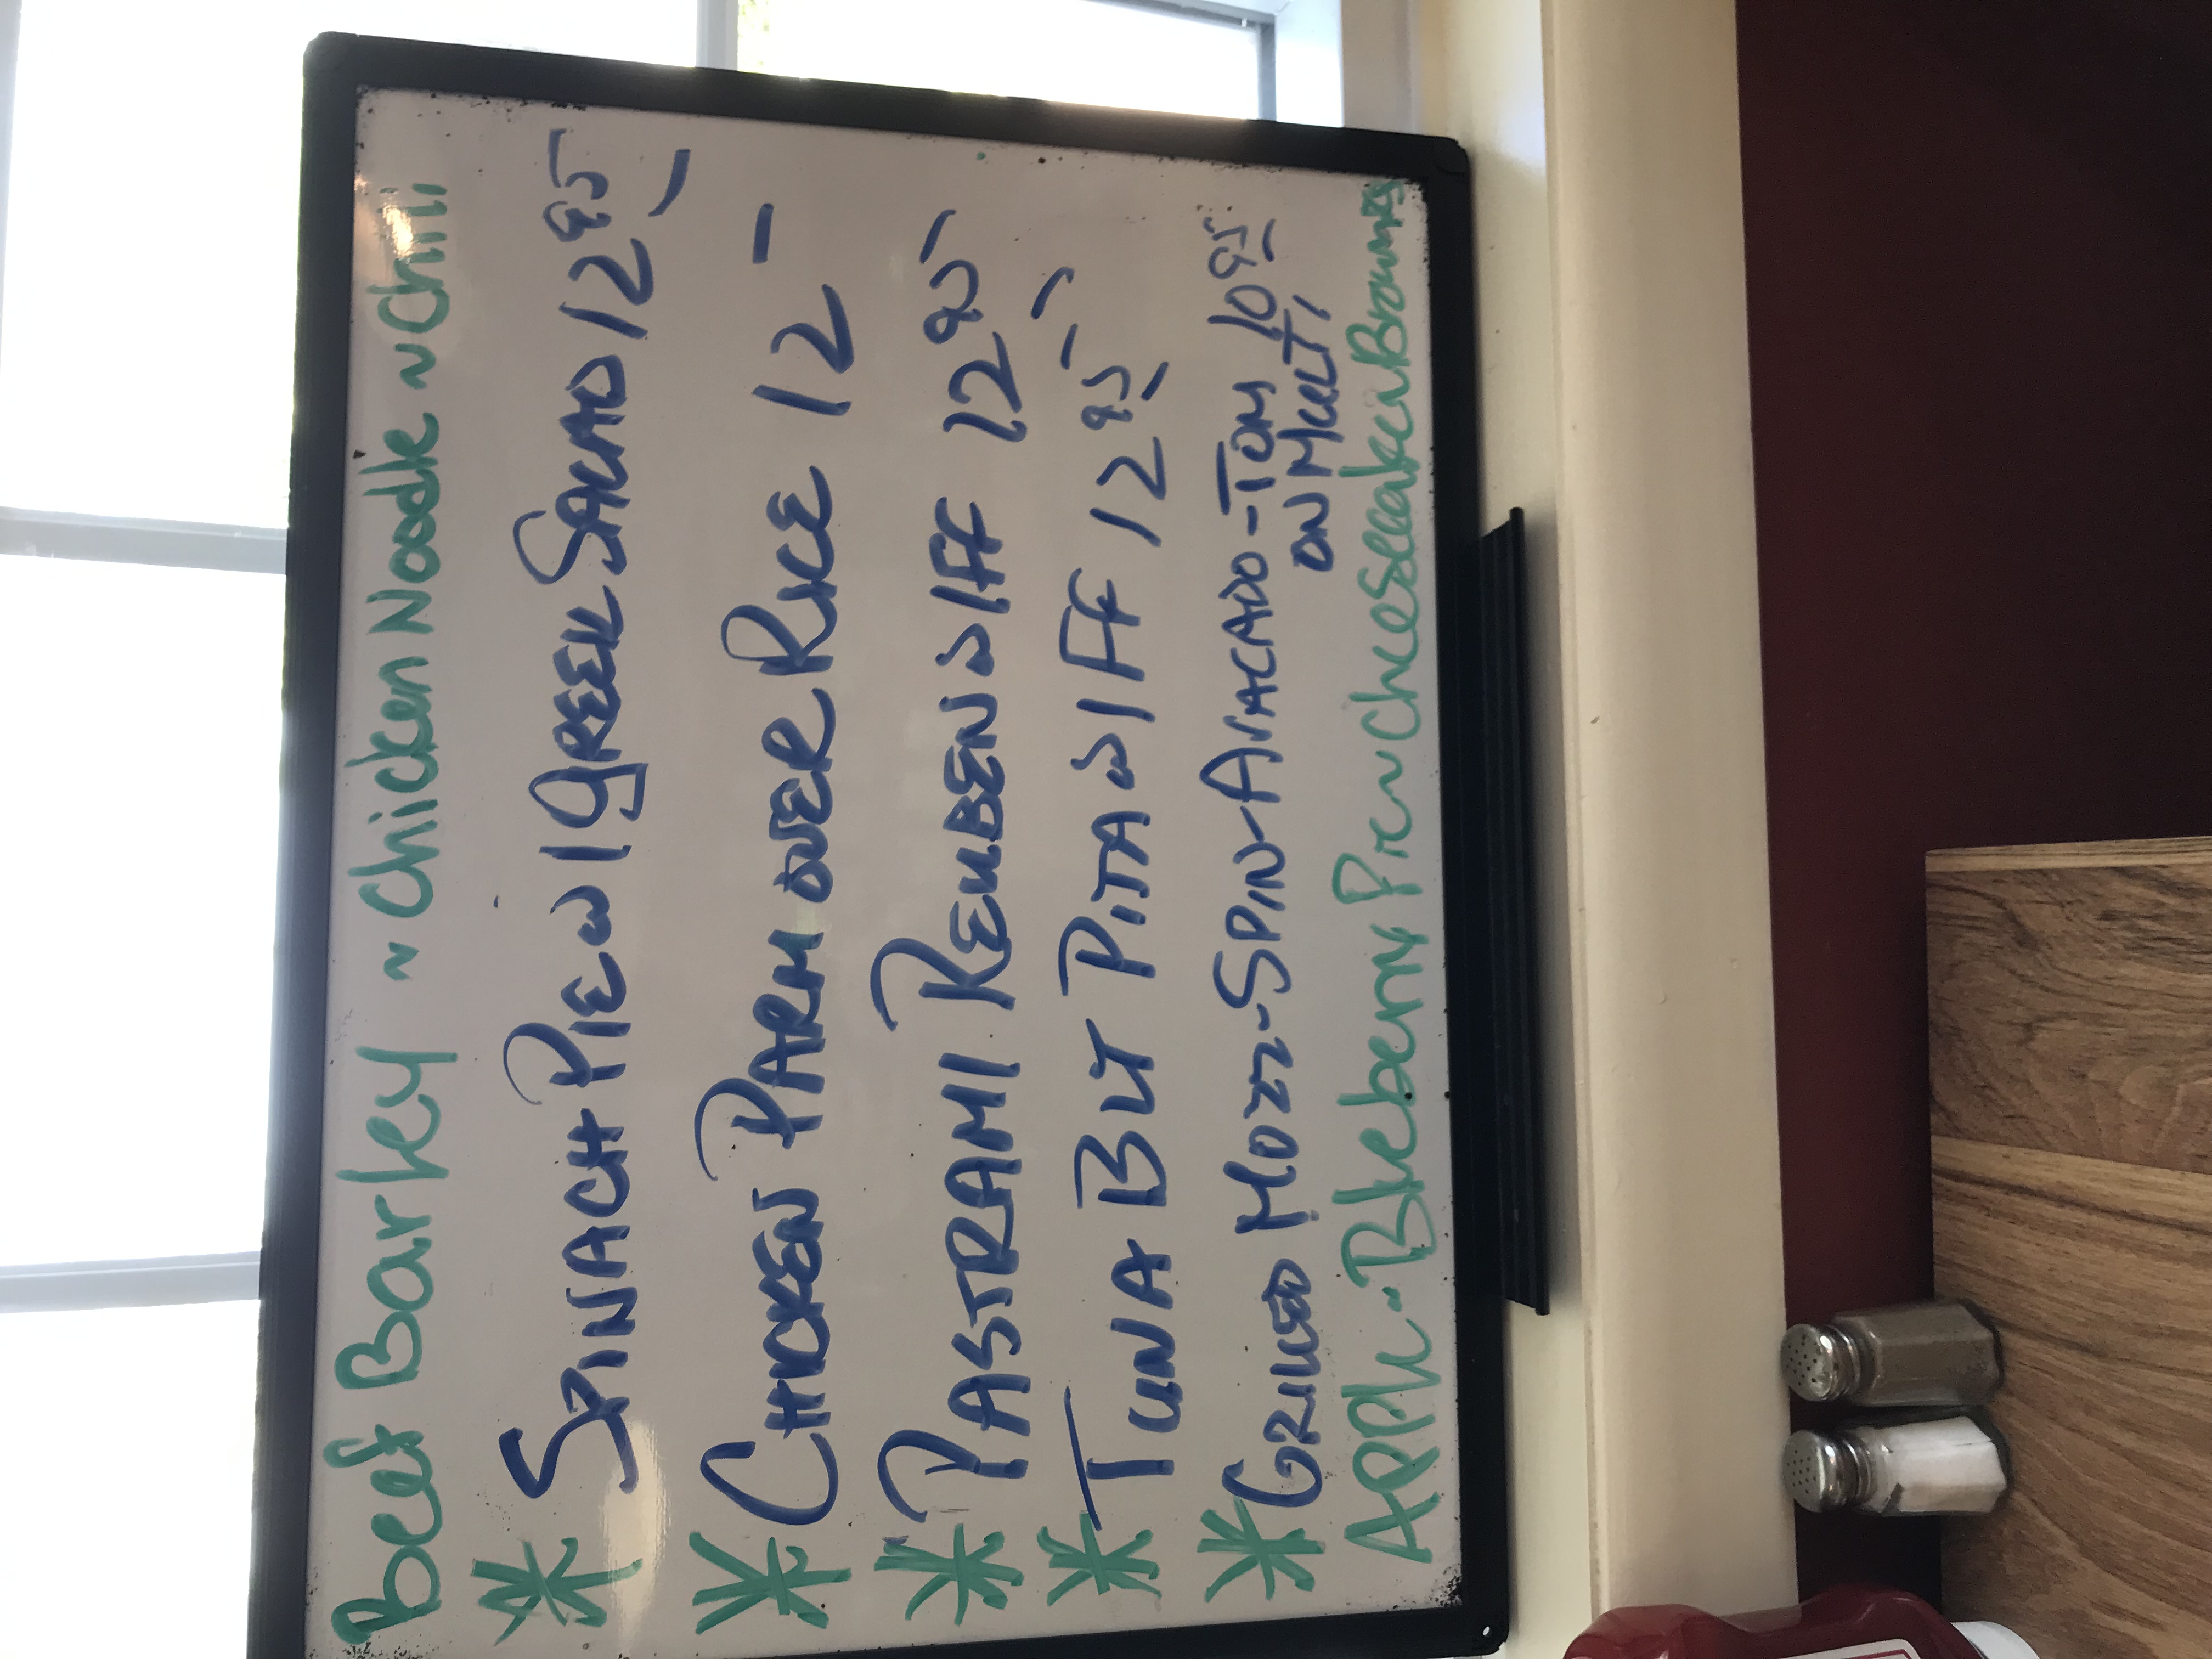 Beef Barley ~ Chicken Noodle ~ Chili
* SPINACH PIE W/ GREEK SALAD 12 95
* CHICKEN PARM OVER RICE 12 -
* PASTRAMI REUBEN W/FF 12 95
* TUNA BLT PITA W/FF 12 95
* GRILLED MOZZ-SPIN-AVACADO-TOM 10 95
ON MULTI
Apple-Blueberry Pie ~ Cheesecake ~ Brownies